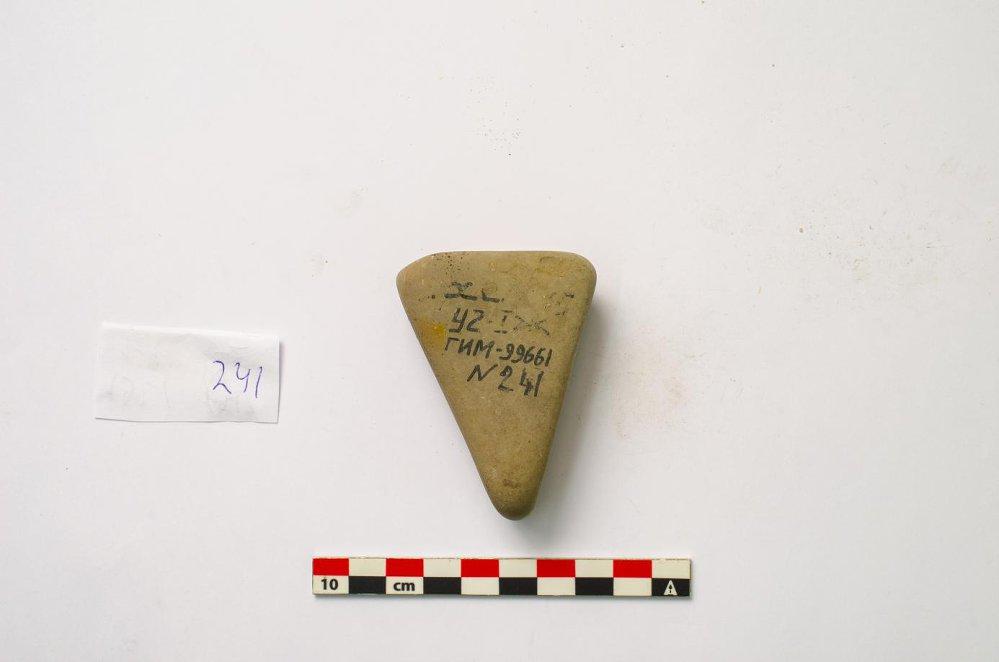 241
У2-I
ГИМ-99661
N 241
10 cm